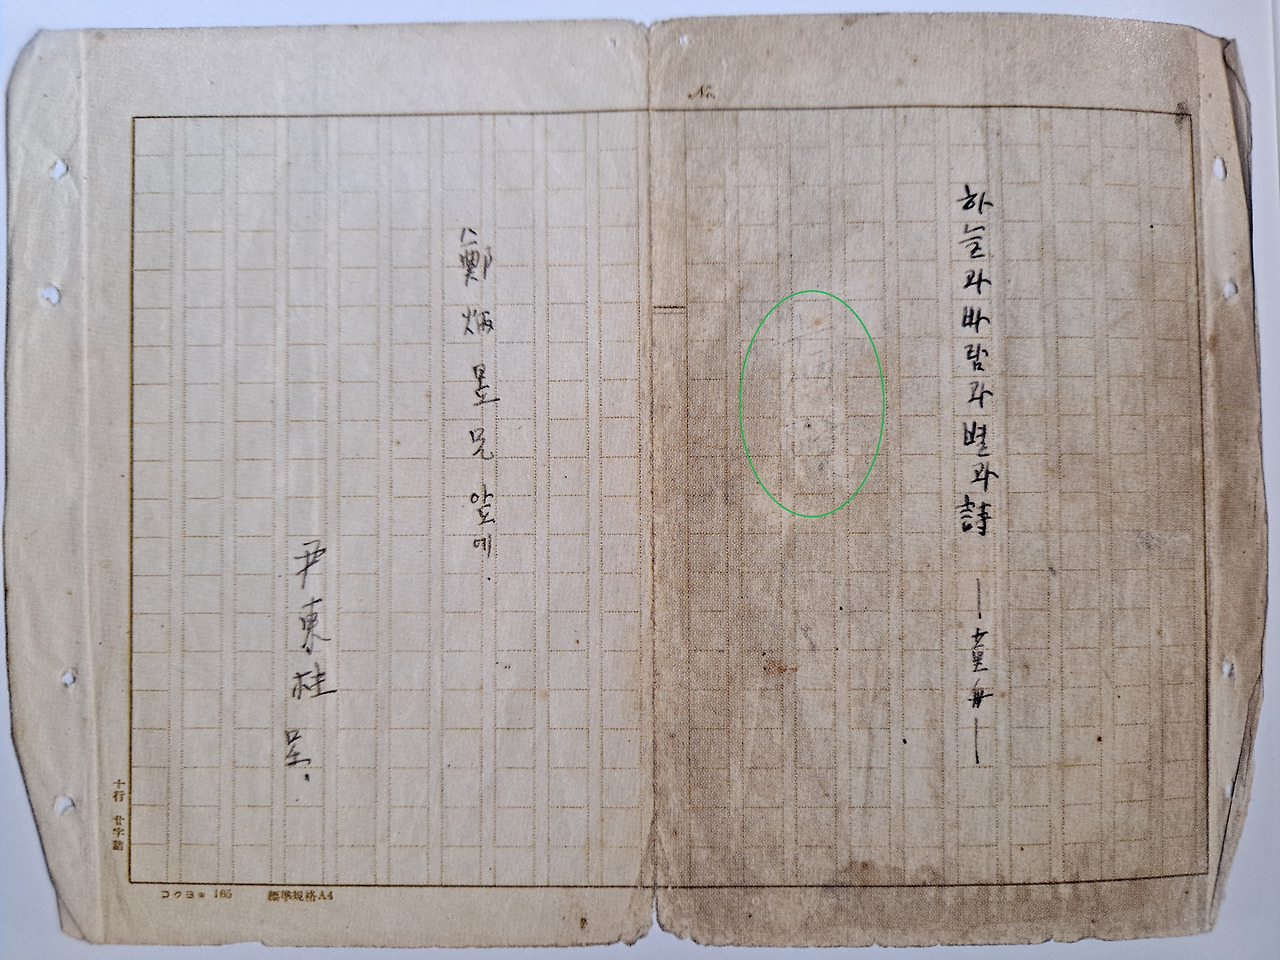 No.
하늘과바람과별과詩 —童舟—
鄭炳昱兄앞에.
尹東柱 呈.
十行 廿字詰
コクヨ 165 標準規格A4